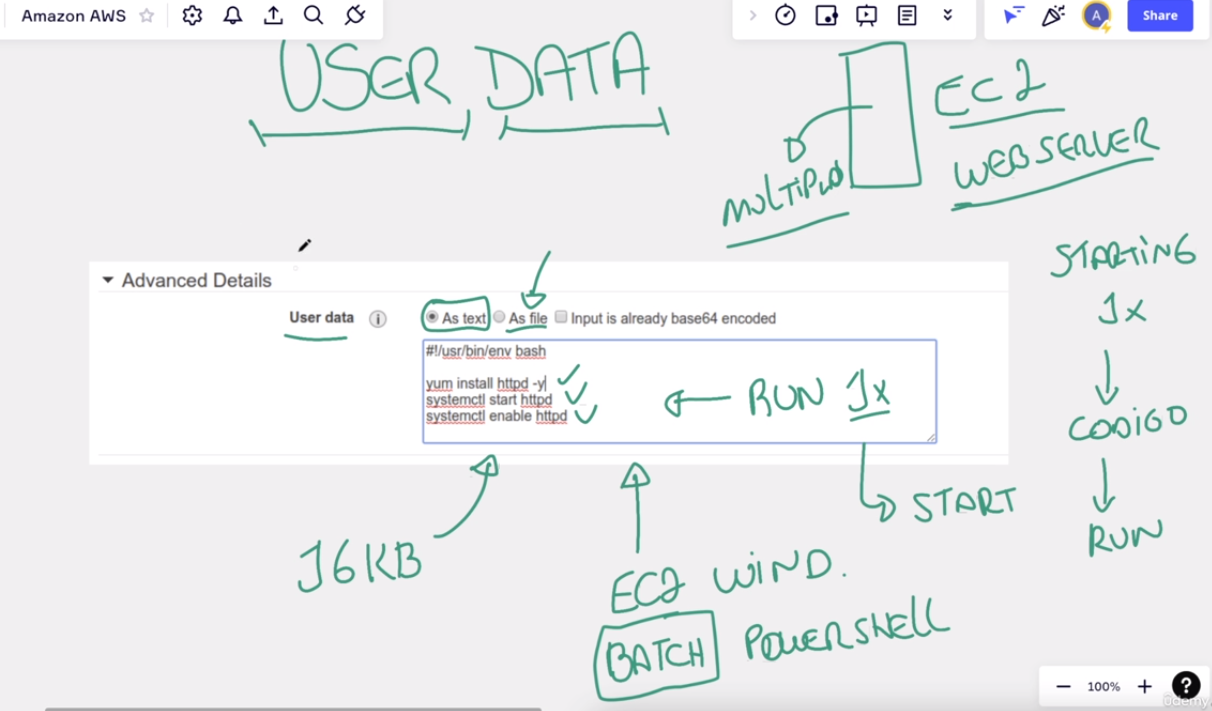 Amazon AWS
A
Share
USER DATA
EC2
WEBSERVER
MULTIPLO
STARTING
1x
CODIGO
RUN
Advanced Details
User data i As text As file Input is already base64 encoded
#!/usr/bin/env bash
yum install httpd -y
systemctl start httpd
systemctl enable httpd
RUN 1x
START
16KB
EC2 WIND.
BATCH POWERSHELL
100%
?
ûdemy